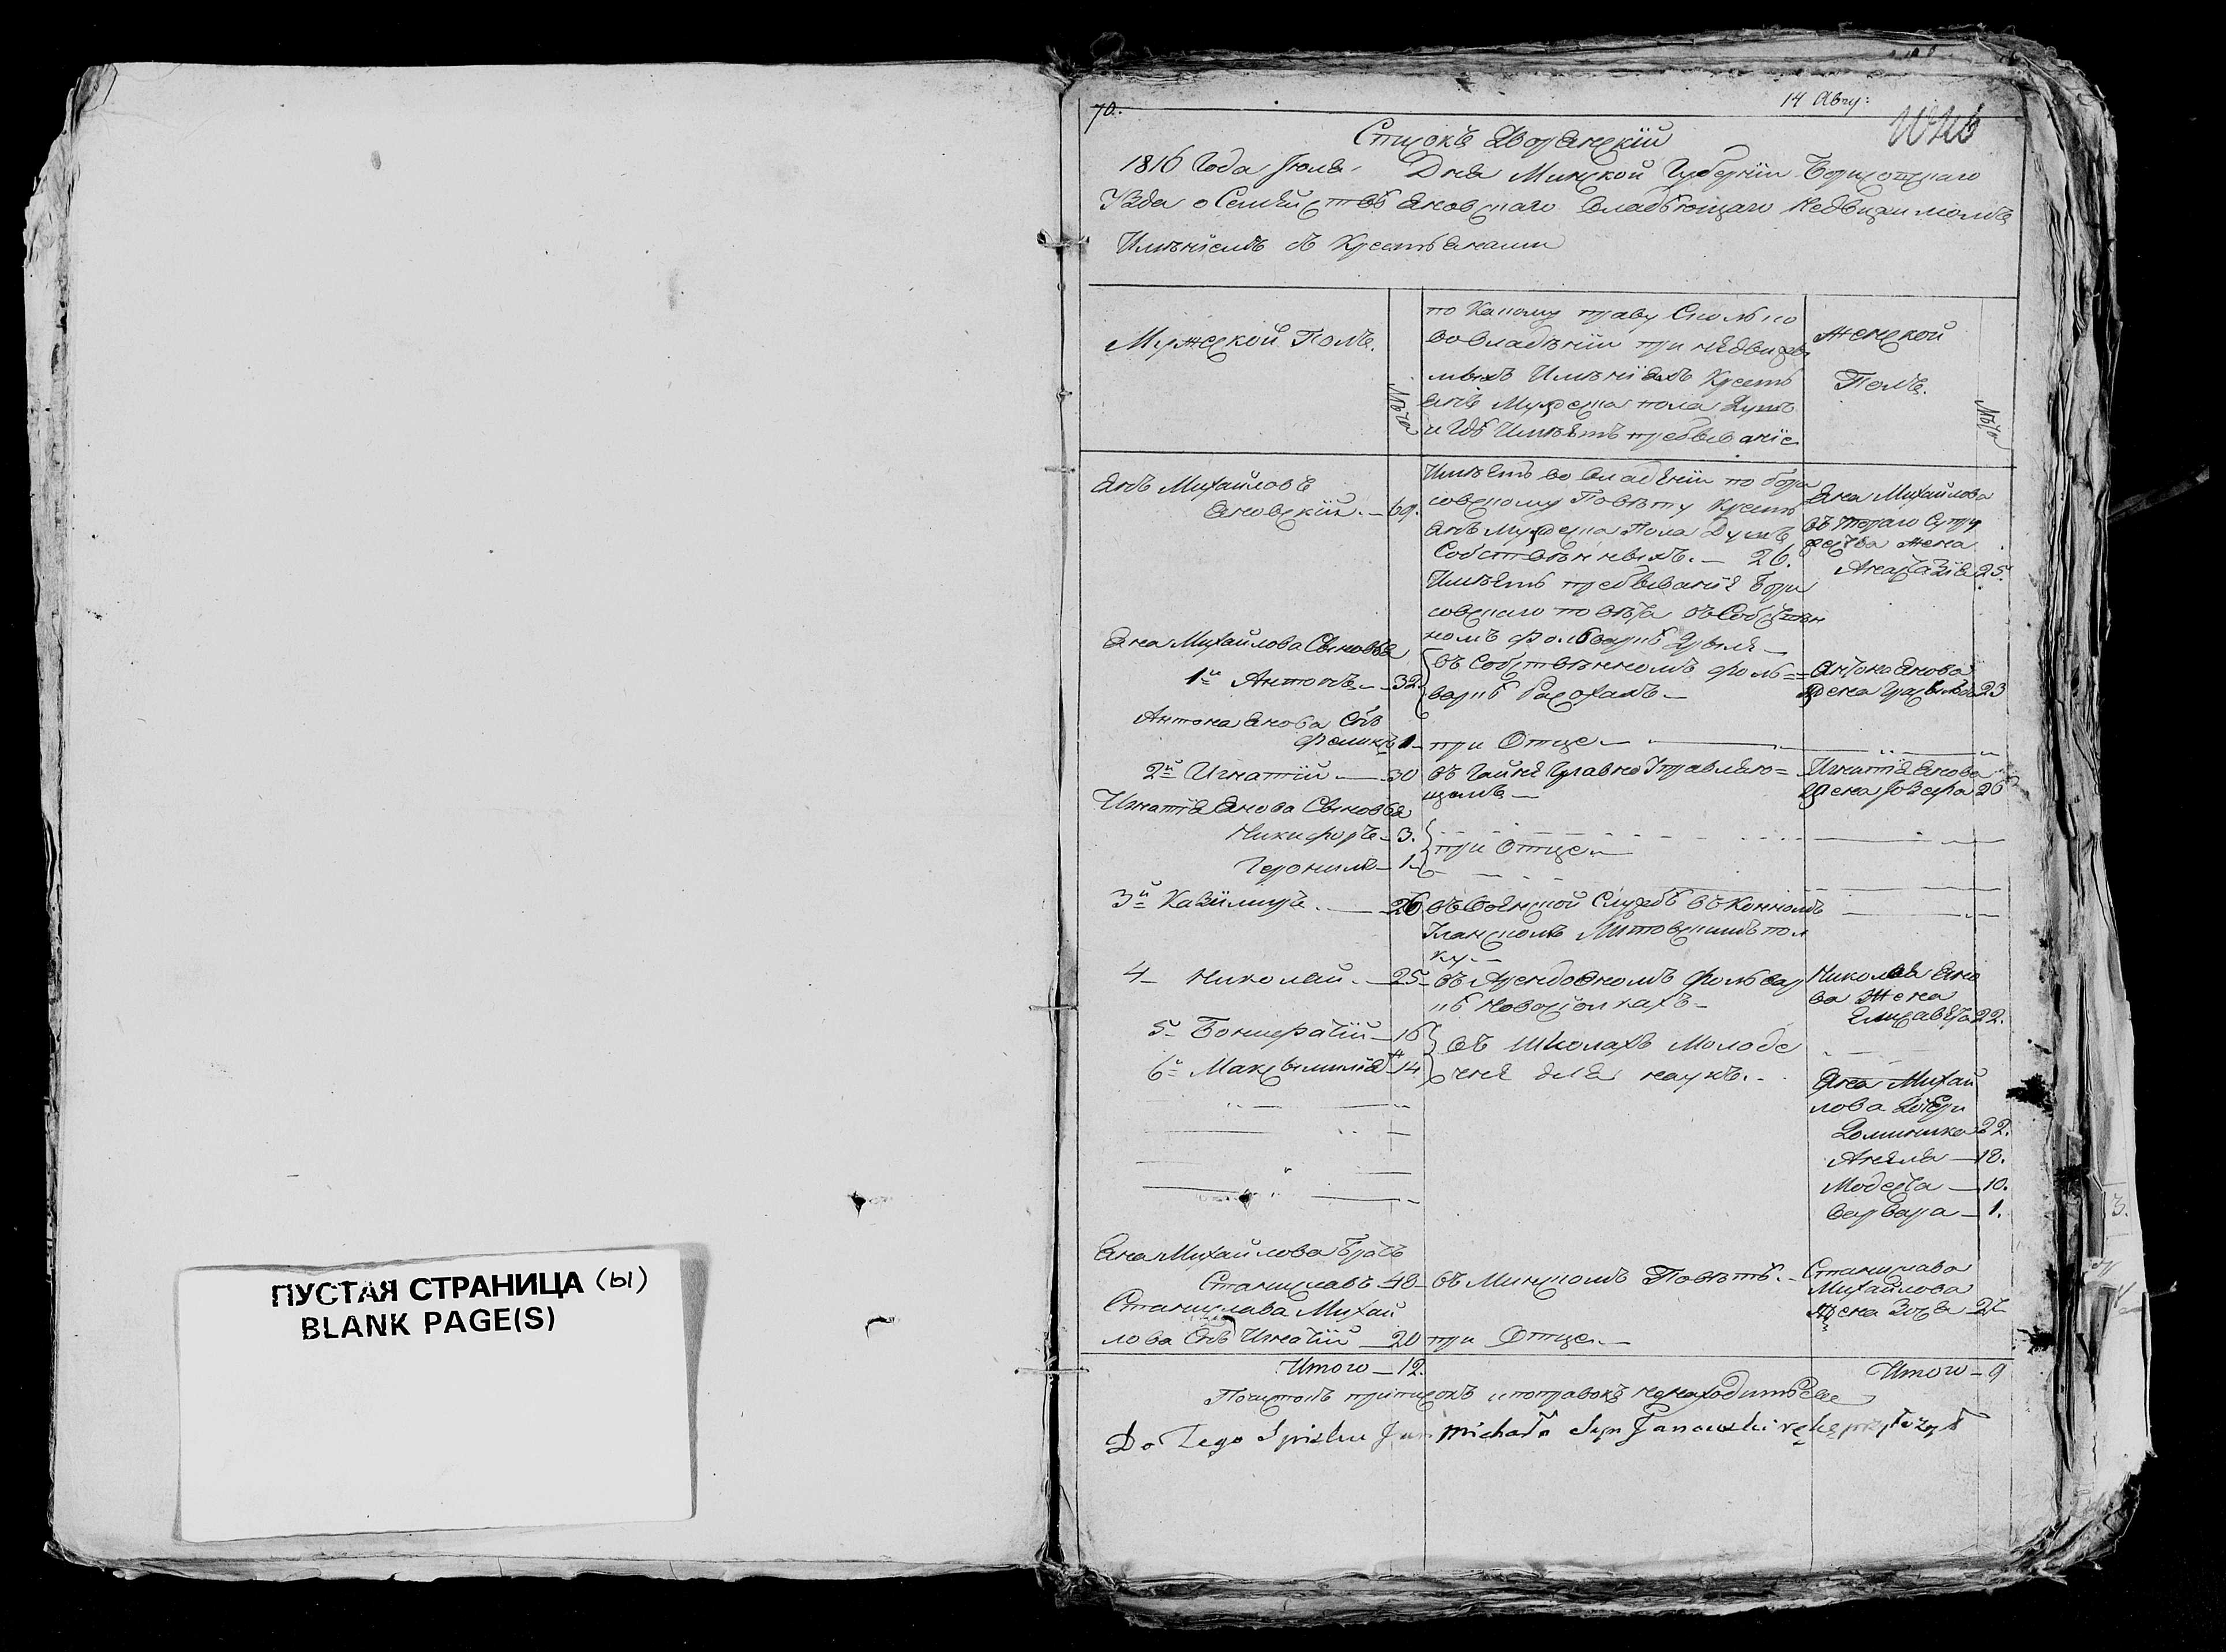 70.
14 Авгу:
Списокъ Дворянскій
1816 Года Іюля Дня Минской Губерніи Борисовскаго
Уѣзда о Семѣйствѣ Яновскаго Владѣющаго Недвижимомъ
Имѣніемъ съ Крестьянами
Мужеской Полъ.
Лѣта
по Какому праву Сколько
во владѣніи при недвижи
мыхъ Имѣніяхъ Кресть
янъ Мужеска пола Душъ
и Гдѣ Имѣетъ пребываніе
Женской
Полъ.
Лѣта
Янъ Михайловъ
Яновскій. — 69.
Имѣетъ во владѣніи по Бори
совскому Повѣту Кресть
янъ Мужеска Пола Душъ
Собственныхъ. — 26.
Имѣетъ пребываніе Бори
совскаго повѣта въ Собствен
номъ фольваркѣ
Яна Михайлова
въ тораго Супру
жества жена
Анастазія 25.
Яна Михайлова Сыновья
1й Антонъ — 32.
въ Собственномъ фоль=
варкѣ
Антона Янова
жена 23
Антона Янова Сынъ
Феликсъ 1 — при Отце —
2й Игнатій — 30
въ Гайнѣ Главно Управляю=
щемъ —
Игнатія Янова
жена Іозефа 26
Игнатія Янова Сыновья
Никифоръ — 3.
Героnимъ — 1 —
при Отце. —
3й Казимиръ. — 26
въ Воинской Службѣ въ Конномъ
Уланскомъ Литовскимъ пол
ку. —
4 — Николай. — 25 —
въ Арендовномъ Фольвар
кѣ Новосіолкахъ —
Николая Яно
ва Жена
Елисавета 22.
5 — Бонифатій — 16
6й Максымиліанъ 14
въ Школахъ Молоде
чнѣ для наукъ. —
Яна Михай
лова Дочери
Доминика 22.
Анеля — 18.
Модеста — 10.
Варвара — 1.
Яна Михайлова Братъ
Станиславъ 48 — въ Минскомъ Повѣтѣ. —
Станислава
Михайлова
жена
Станислава Михай
лова Сынъ Игнатій — 20 при Отце. —
Итого — 12.
Итого — 9
приписокъ и поправокъ ненаходитьсе
Do Tego Spisku Jan Michała Syn Janowski rękę przyłożył
ПУСТАЯ СТРАНИЦА (ы)
BLANK PAGE(S)
3.